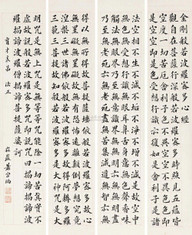 般若波羅蜜多心經
觀自在菩薩行深般若波羅蜜多時照見五蘊皆
空度一切苦厄舍利子色不異空空不異色色即
是空空即是色受想行識亦復如是舍利子是諸
法空相不生不滅不垢不淨不增不減是故空中
無色無受想行識無眼耳鼻舌身意無色聲香味
觸法無眼界乃至無意識界無無明亦無無明盡
乃至無老死亦無老死盡無苦集滅道無智亦無
得以無所得故菩提薩埵依般若波羅蜜多故心
無罣礙無罣礙故無有恐怖遠離顛倒夢想究竟
涅槃三世諸佛依般若波羅蜜多故得阿耨多羅
三藐三菩提故知般若波羅蜜多是大神咒是大
明咒是無上咒是無等等咒能除一切苦真實不
虛故說般若波羅蜜多咒即說咒曰揭諦揭諦
波羅揭諦波羅僧揭諦菩提薩婆訶